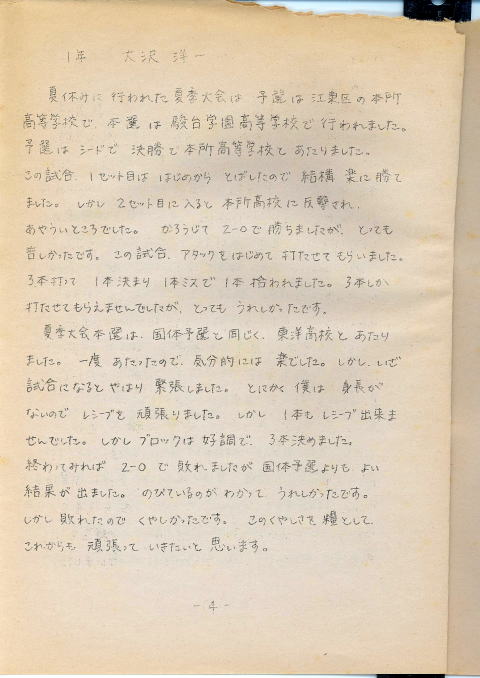 1年 大沢 洋一
夏休みに行われた夏季大会は 予選は江東区の本所
高等学校で、本選は駿台学園高等学校で行われました。
予選はシードで決勝で本所高等学校とあたりました。
この試合、1セット目ははじめからとばしたので結構楽に勝て
ました。しかし2セット目に入ると本所高校に反撃され、
あやういところでした。かろうじて2-0で勝ちましたが、とっても
苦しかったです。この試合、アタックをはじめて打たせてもらいました。
3本打って 1本決まり 1本ミスで 1本拾われました。3本しか
打たせてもらえませんでしたが、とってもうれしかったです。
夏季大会本選は、国体予選と同じく、東洋高校とあたり
ました。一度あたったので、気分的には楽でした。しかし、いざ
試合になるとやはり緊張しました。とにかく僕は身長が
ないのでレシーブを頑張りました。しかし 1本もレシーブ出来ま
せんでした。しかしブロックは好調で、3本決めました。
終わってみれば 2-0で敗れましたが国体予選よりも、よい
結果が出ました。のびているのがわかって、うれしかったです。
しかし敗れたのでくやしかったです。このくやしさを糧として、
これからも頑張っていきたいと思います。
-4-